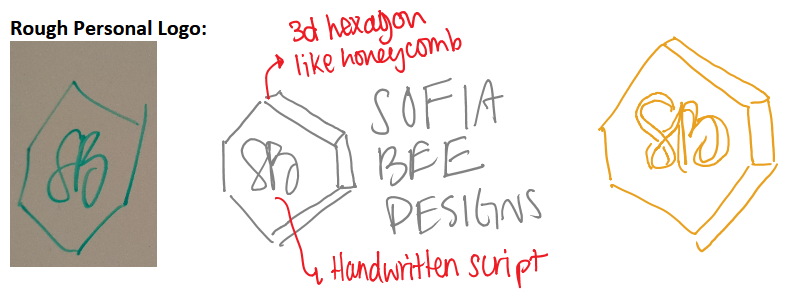 Rough Personal Logo:
SB
3d hexagon
like honeycomb
SB
SOFIA
BEE
DESIGNS
Handwritten script
SB